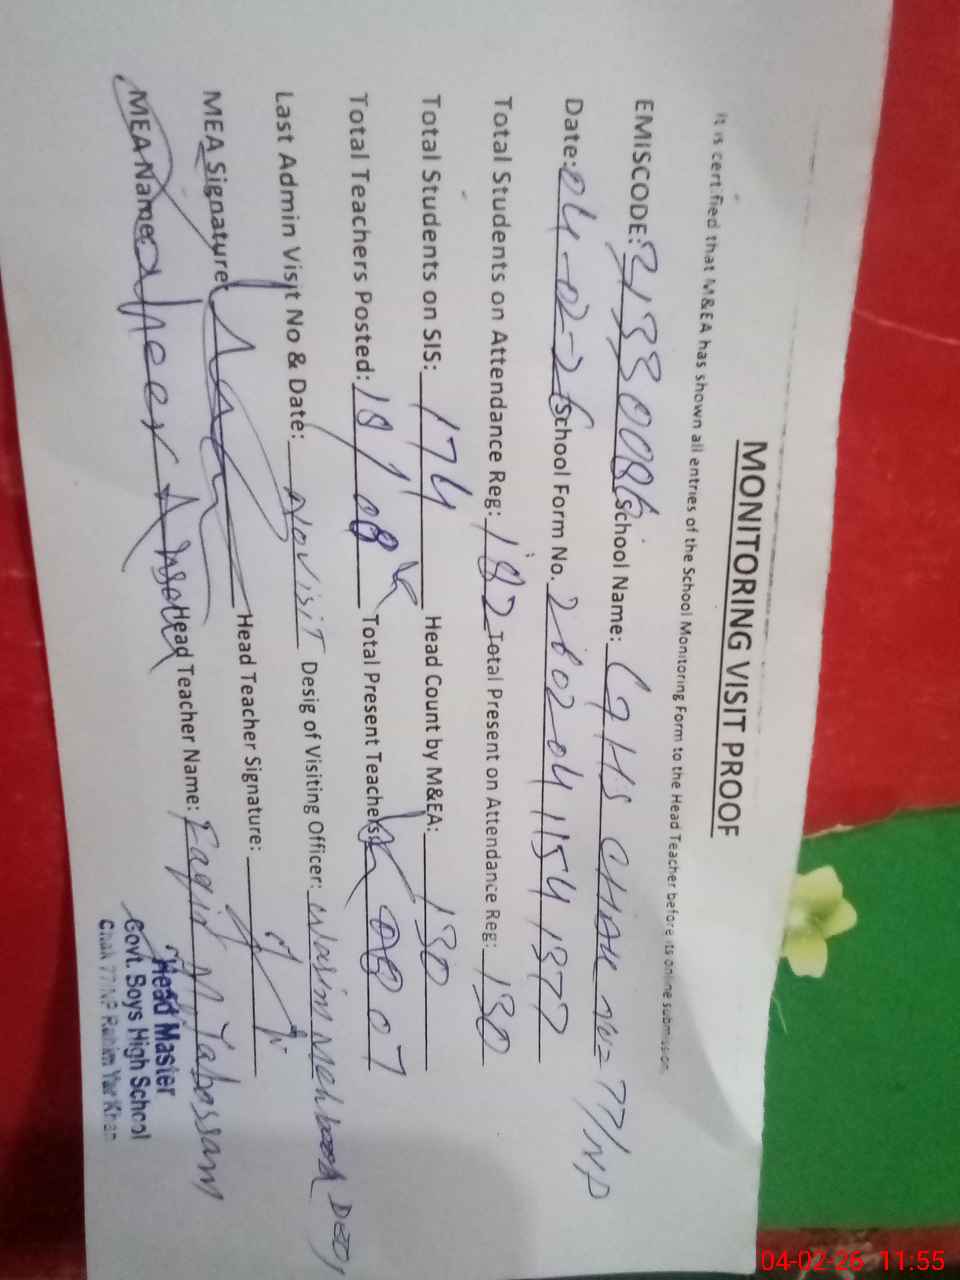 MONITORING VISIT PROOF
It is certified that M&EA has shown all entries of the School Monitoring Form to the Head Teacher before its online submission.
EMISCODE: 31330086 School Name: GHS CHAK NO= 77/NP
Date: 04-02-26 School Form No. 26020411541377
Total Students on Attendance Reg: 182 Total Present on Attendance Reg: 130
Total Students on SIS: 174 Head Count by M&EA: 130
Total Teachers Posted: 08 Total Present Teachers: 07
Last Admin Visit No & Date: No visit Desig of Visiting Officer: Wasim Mehbood DEO,
MEA Signature: Head Teacher Signature:
MEA Name: Head Teacher Name: Faqir M Tabassam
Head Master
Govt. Boys High School
Chak 77/NP Rahim Yar Khan
04-02-26 11:55